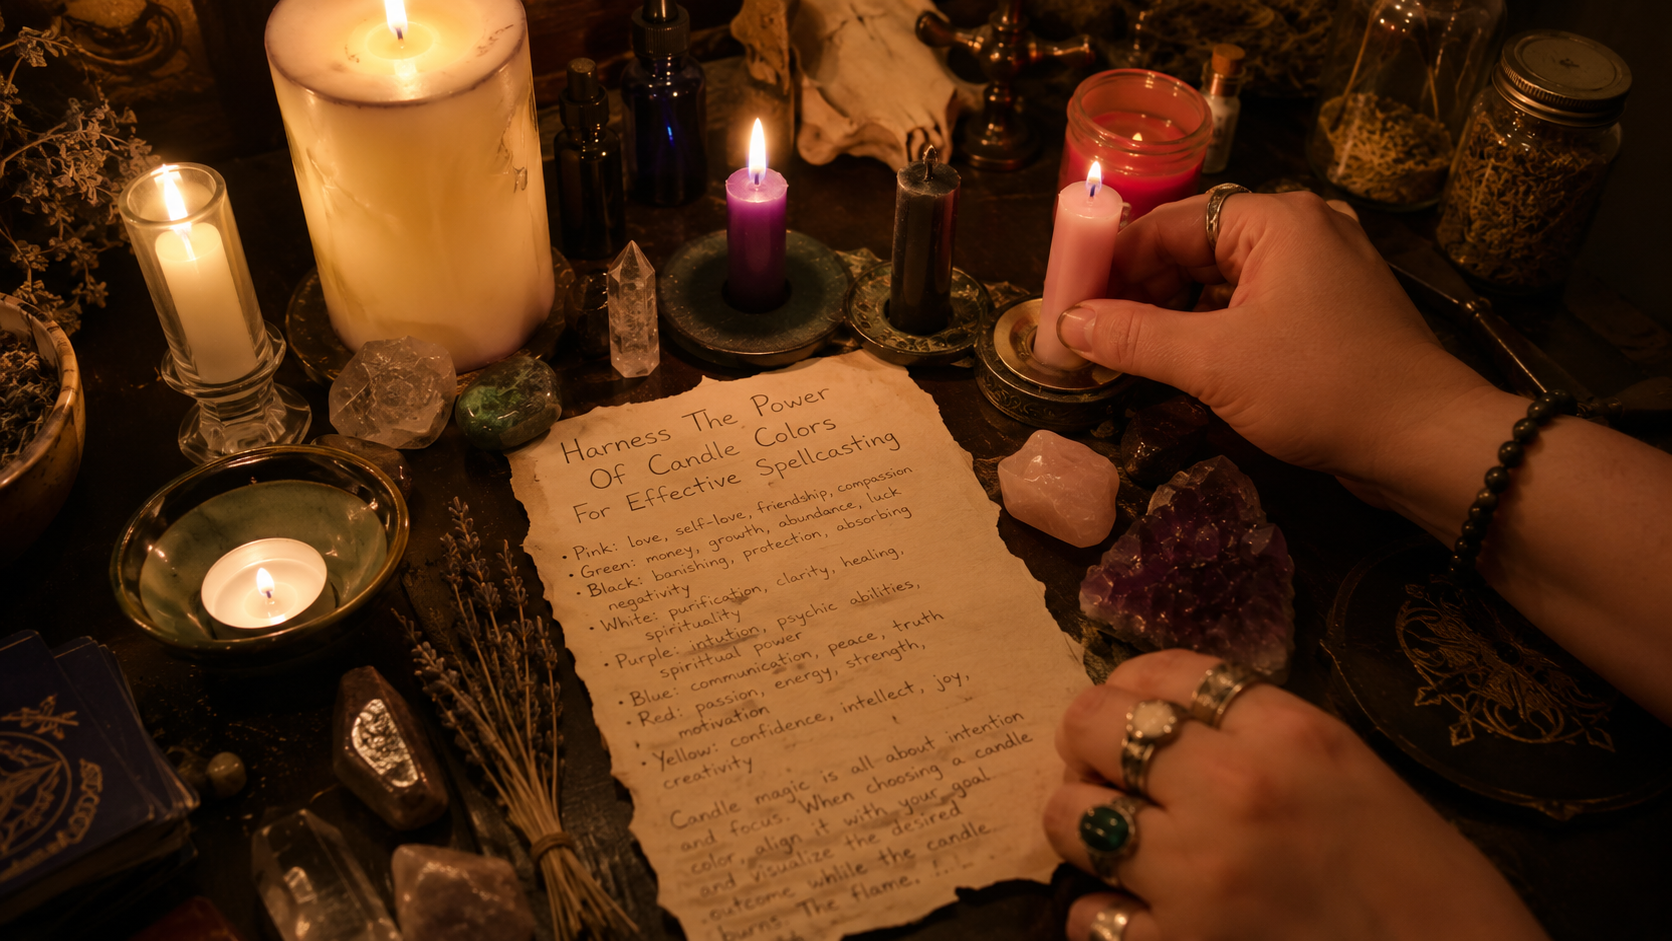 Harness The Power
Of Candle Colors
For Effective Spellcasting
• Pink: love, self-love, friendship, compassion
• Green: money, growth, abundance, luck
• Black: banishing, protection, absorbing
negativity
• White: purification, clarity, healing,
spirituality
• Purple: intution, psychic abilities,
spirittual power
• Blue: communication, peace, truth
• Red: passion, energy, strength,
motivation
• Yellow: confidence, intellect, joy,
creativity
Candle magic is all about intention
and focus. When choosing a candle
color, align it with your goal
and visualize the desired
outcome whlile the candle
burns. The flame, ...